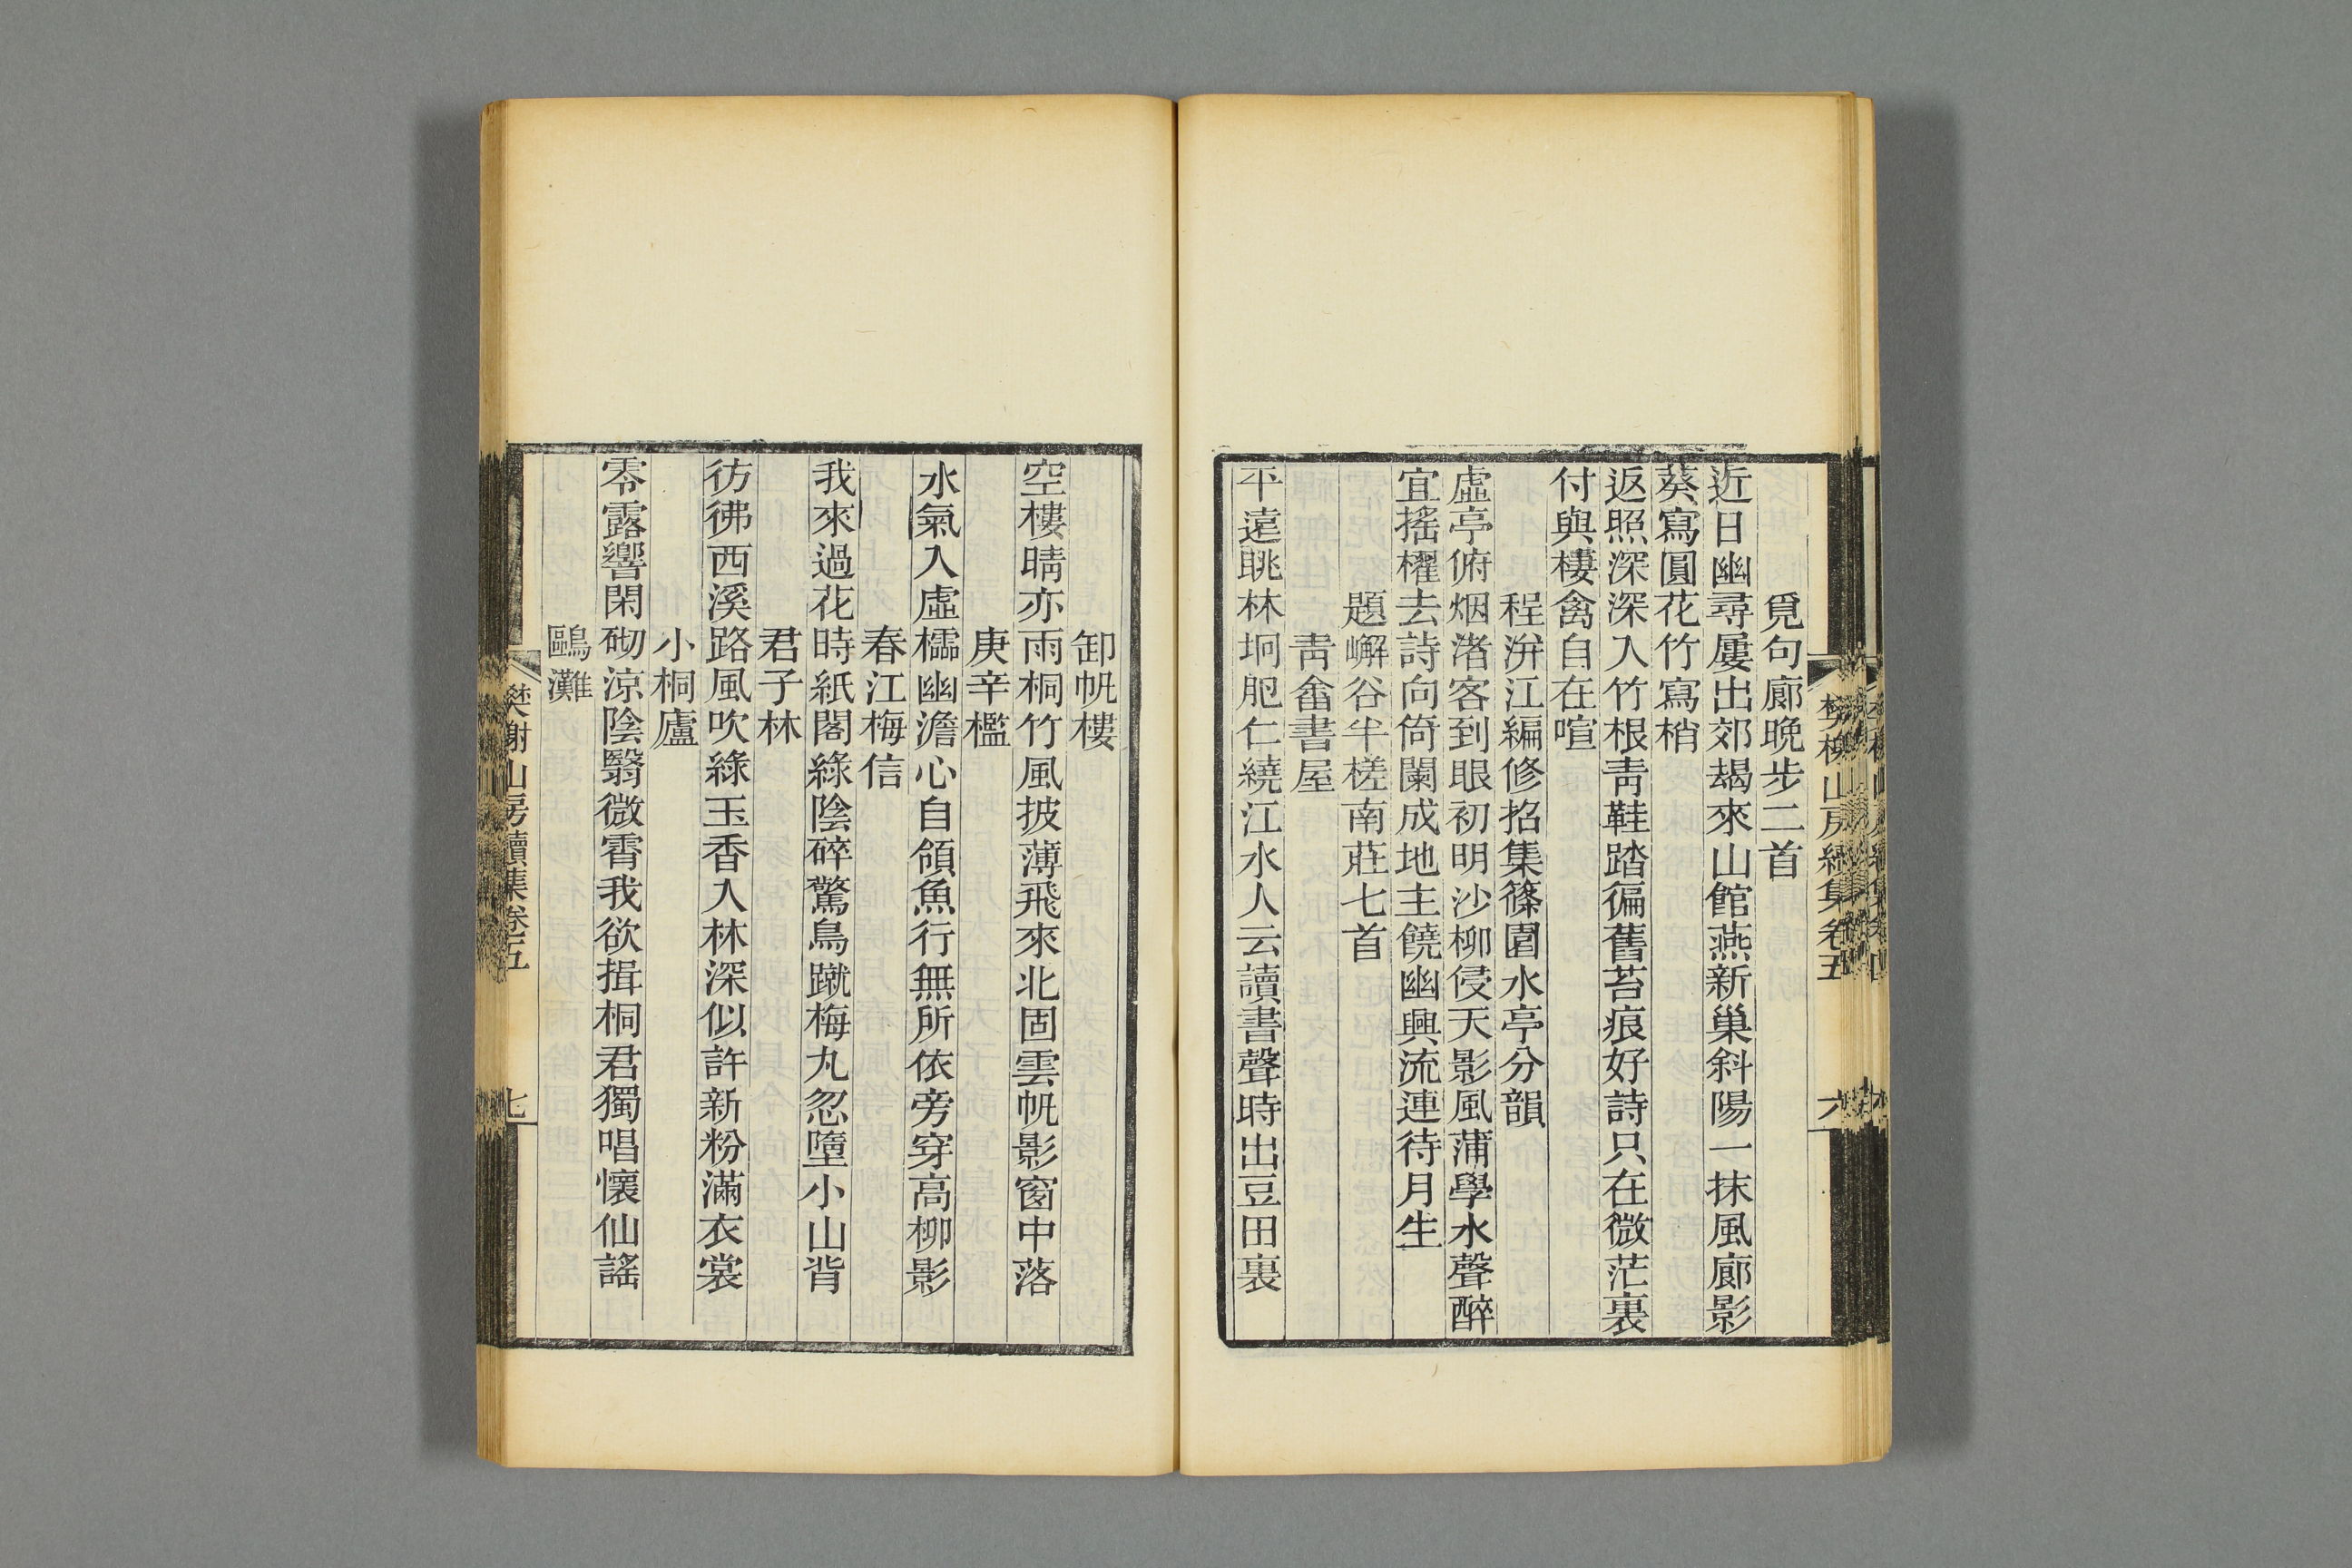 覓句廊晚步二首
近日幽尋屢出郊朅來山館燕新巢斜陽一抹風廊影
葵寫圓花竹寫梢
返照深深入竹根靑鞋踏徧舊苔痕好詩只在微茫裏
付與棲禽自在喧
程洴江編修招集篠園水亭分韻
虛亭俯烟渚客到眼初明沙柳侵天影風蒲學水聲醉
宜搖櫂去詩向倚闌成地主饒幽興流連待月生
題嶰谷半槎南莊七首
靑畬書屋
平遠眺林坰肥仁繞江水人云讀書聲時出豆田裏
卸帆樓
空樓晴亦雨桐竹風披薄飛來北固雲帆影窗中落
庚辛檻
水氣入虛櫺幽澹心自領魚行無所依旁穿高柳影
春江梅信
我來過花時紙閣綠陰碎驚鳥蹴梅丸忽墮小山背
君子林
彷彿西溪路風吹綠玉香人林深似許新粉滿衣裳
小桐廬
零露響閑砌涼陰翳微霄我欲揖桐君獨唱懷仙謠
鷗灘
樊榭山房續集卷五
七